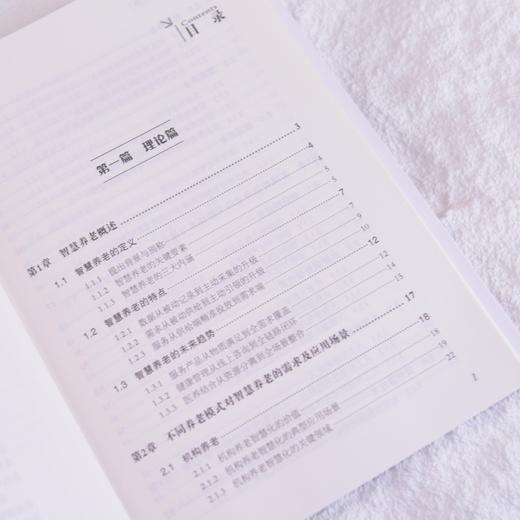 Contents
目 录
第一篇 理论篇
第1章 智慧养老概述 3
1.1 智慧养老的定义 4
1.1.1 提出背景与别称 4
1.1.2 智慧养老的关键要素 5
1.1.3 智慧养老的三大内涵
1.2 智慧养老的特点 7
1.2.1 数据从被动记录到主动采集的升级
1.2.2 需求从被动供给到主动引领的升级
1.2.3 服务从供给端精准投放到需求端
1.3 智慧养老的未来趋势 12
1.3.1 服务产品从物质满足到全需求覆盖
1.3.2 健康管理从线上咨询到全链路闭环
1.3.3 医养结合从资源分离到全场景整合 15
第2章 不同养老模式对智慧养老的需求及应用场景 17
2.1 机构养老 18
2.1.1 机构养老智慧化的价值
2.1.2 机构养老智慧化的典型应用场景 19
2.1.3 机构养老智慧化的关键领域 22
I